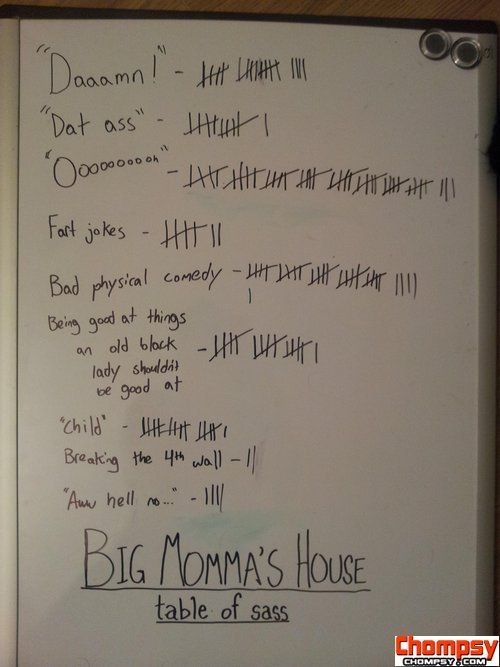 "Daaamn!" -
"Dat ass" -
"Oooooooooh" -
Fart jokes -
Bad physical comedy -
Being good at things
an old black -
lady shouldn't
be good at
"Child" -
Breaking the 4th wall -
"Aww hell no..." -
BIG MOMMA'S HOUSE
table of sass
Chompsy
CHOMPSY.COM